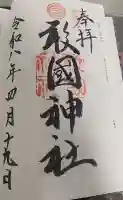 奉拝
祇園神社
令和八年四月十九日